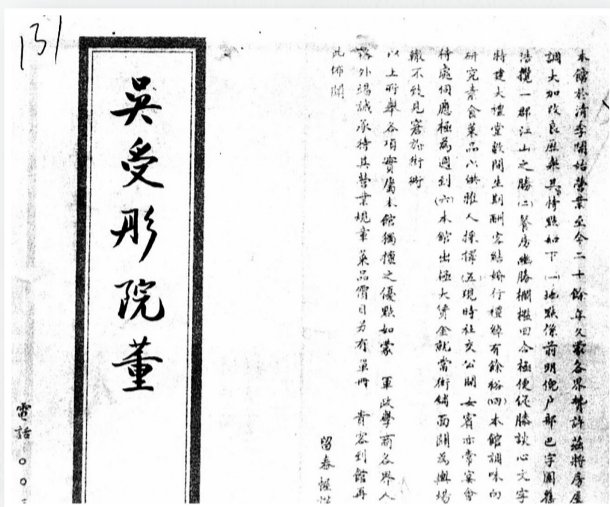 本館於清季開始營業至今二十餘年久蒙各界贊許茲將房屋
調大加改良歷舉其特點如下(一)地點係前明倪戶部巴字園舊
浩攬一郡江山之勝(二)餐房幽勝欄檻四合極便促膝談心文字
特建大禮堂歡開生期酬客結婚行禮綽有餘裕(四)本館調味向
研究青食菜品以供雅人採擇(五)現時社交公開女賓亦常宴會
待處伺應極為週到(六)本館出極大資金就當街鋪面闢為輿場
轍不致見窘於街衢
以上所舉各項實屬本館獨擅之優點如蒙 軍政學商各界人
格外竭誠承待其營業規章菜品價目另有單冊 貴客到館再
此佈聞
留春幄
吳受彤院董
電話〇〇
131